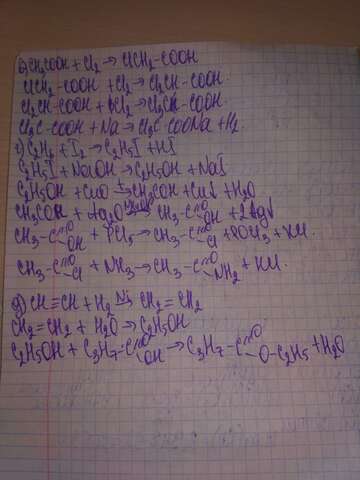 в) CH₃COOH + Cl₂ → ClCH₂-COOH
ClCH₂-COOH + Cl₂ → Cl₂CH-COOH.
Cl₂CH-COOH + Cl₂ → Cl₃C-COOH.
Cl₃C-COOH + Na → Cl₃C-COONa + H₂
г) C₂H₆ + I₂ → C₂H₅I + HI
C₂H₅I + NaOH → C₂H₅OH + NaI
C₂H₅OH + CuO → CH₃COH + Cu↓ + H₂O
CH₃COH + Ag₂O → CH₃-C=O OH + 2Ag↓
CH₃-C=O OH + PCl₅ → CH₃-C=O Cl + POCl₃ + HCl.
CH₃-C=O Cl + NH₃ → CH₃-C=O NH₂ + HCl.
д) CH≡CH + H₂ Ni→ CH₂=CH₂
CH₂=CH₂ + H₂O → C₂H₅OH
C₂H₅OH + C₃H₇-C=O OH → C₃H₇-C=O O-C₂H₅ + H₂O